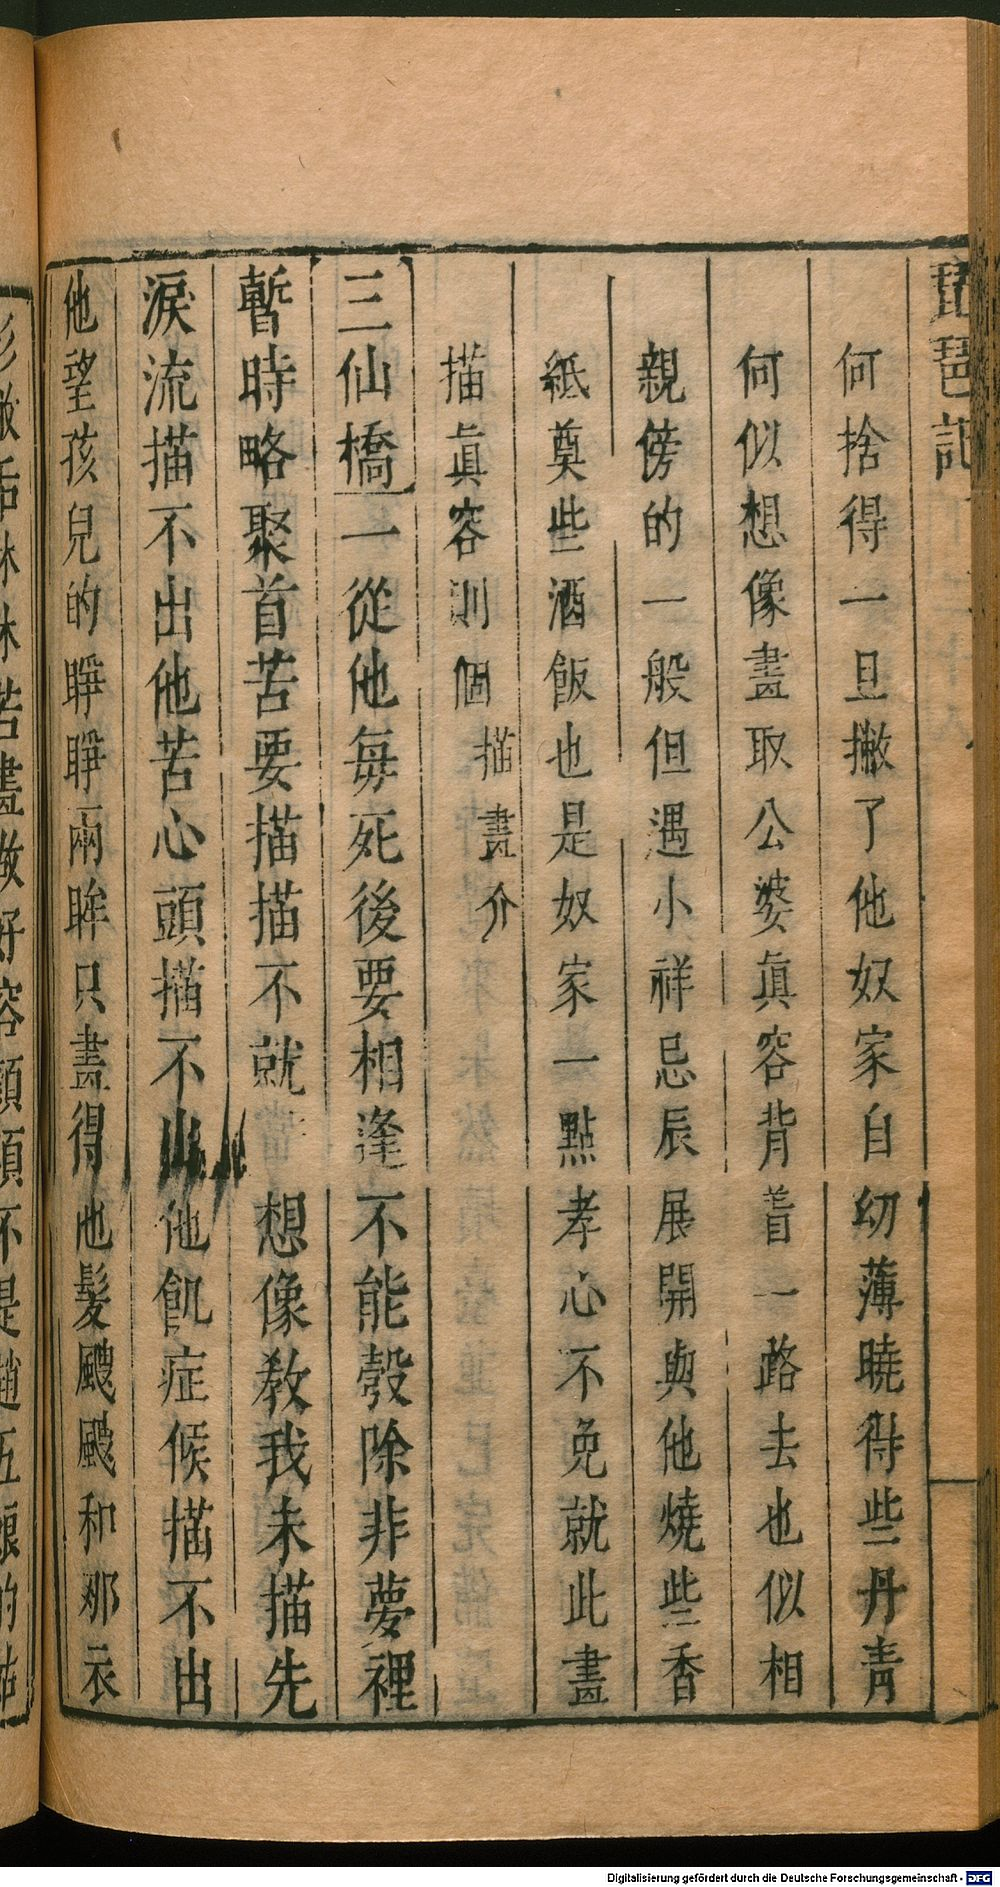 琵琶記
何捨得一旦撇了他奴家自幼薄曉得些丹青
何似想像畫取公婆眞容背着一路去也似相
親傍的一般但遇小祥忌辰展開與他燒些香
紙奠些酒飯也是奴家一點孝心不免就此畫
描眞容則個 描畫介
三仙橋一從他每死後要相逢不能彀除非夢裡
暫時略聚首苦要描描不就 想像教我未描先
淚流描不出他苦心頭描不出他飢症候描不出
他望孩兒的睜睜兩眸只畫得他髮颼颼和那衣
衫敝
苦畫做好容顏須不是趙五娘的姑
Digitalisierung gefördert durch die Deutsche Forschungsgemeinschaft - DFG